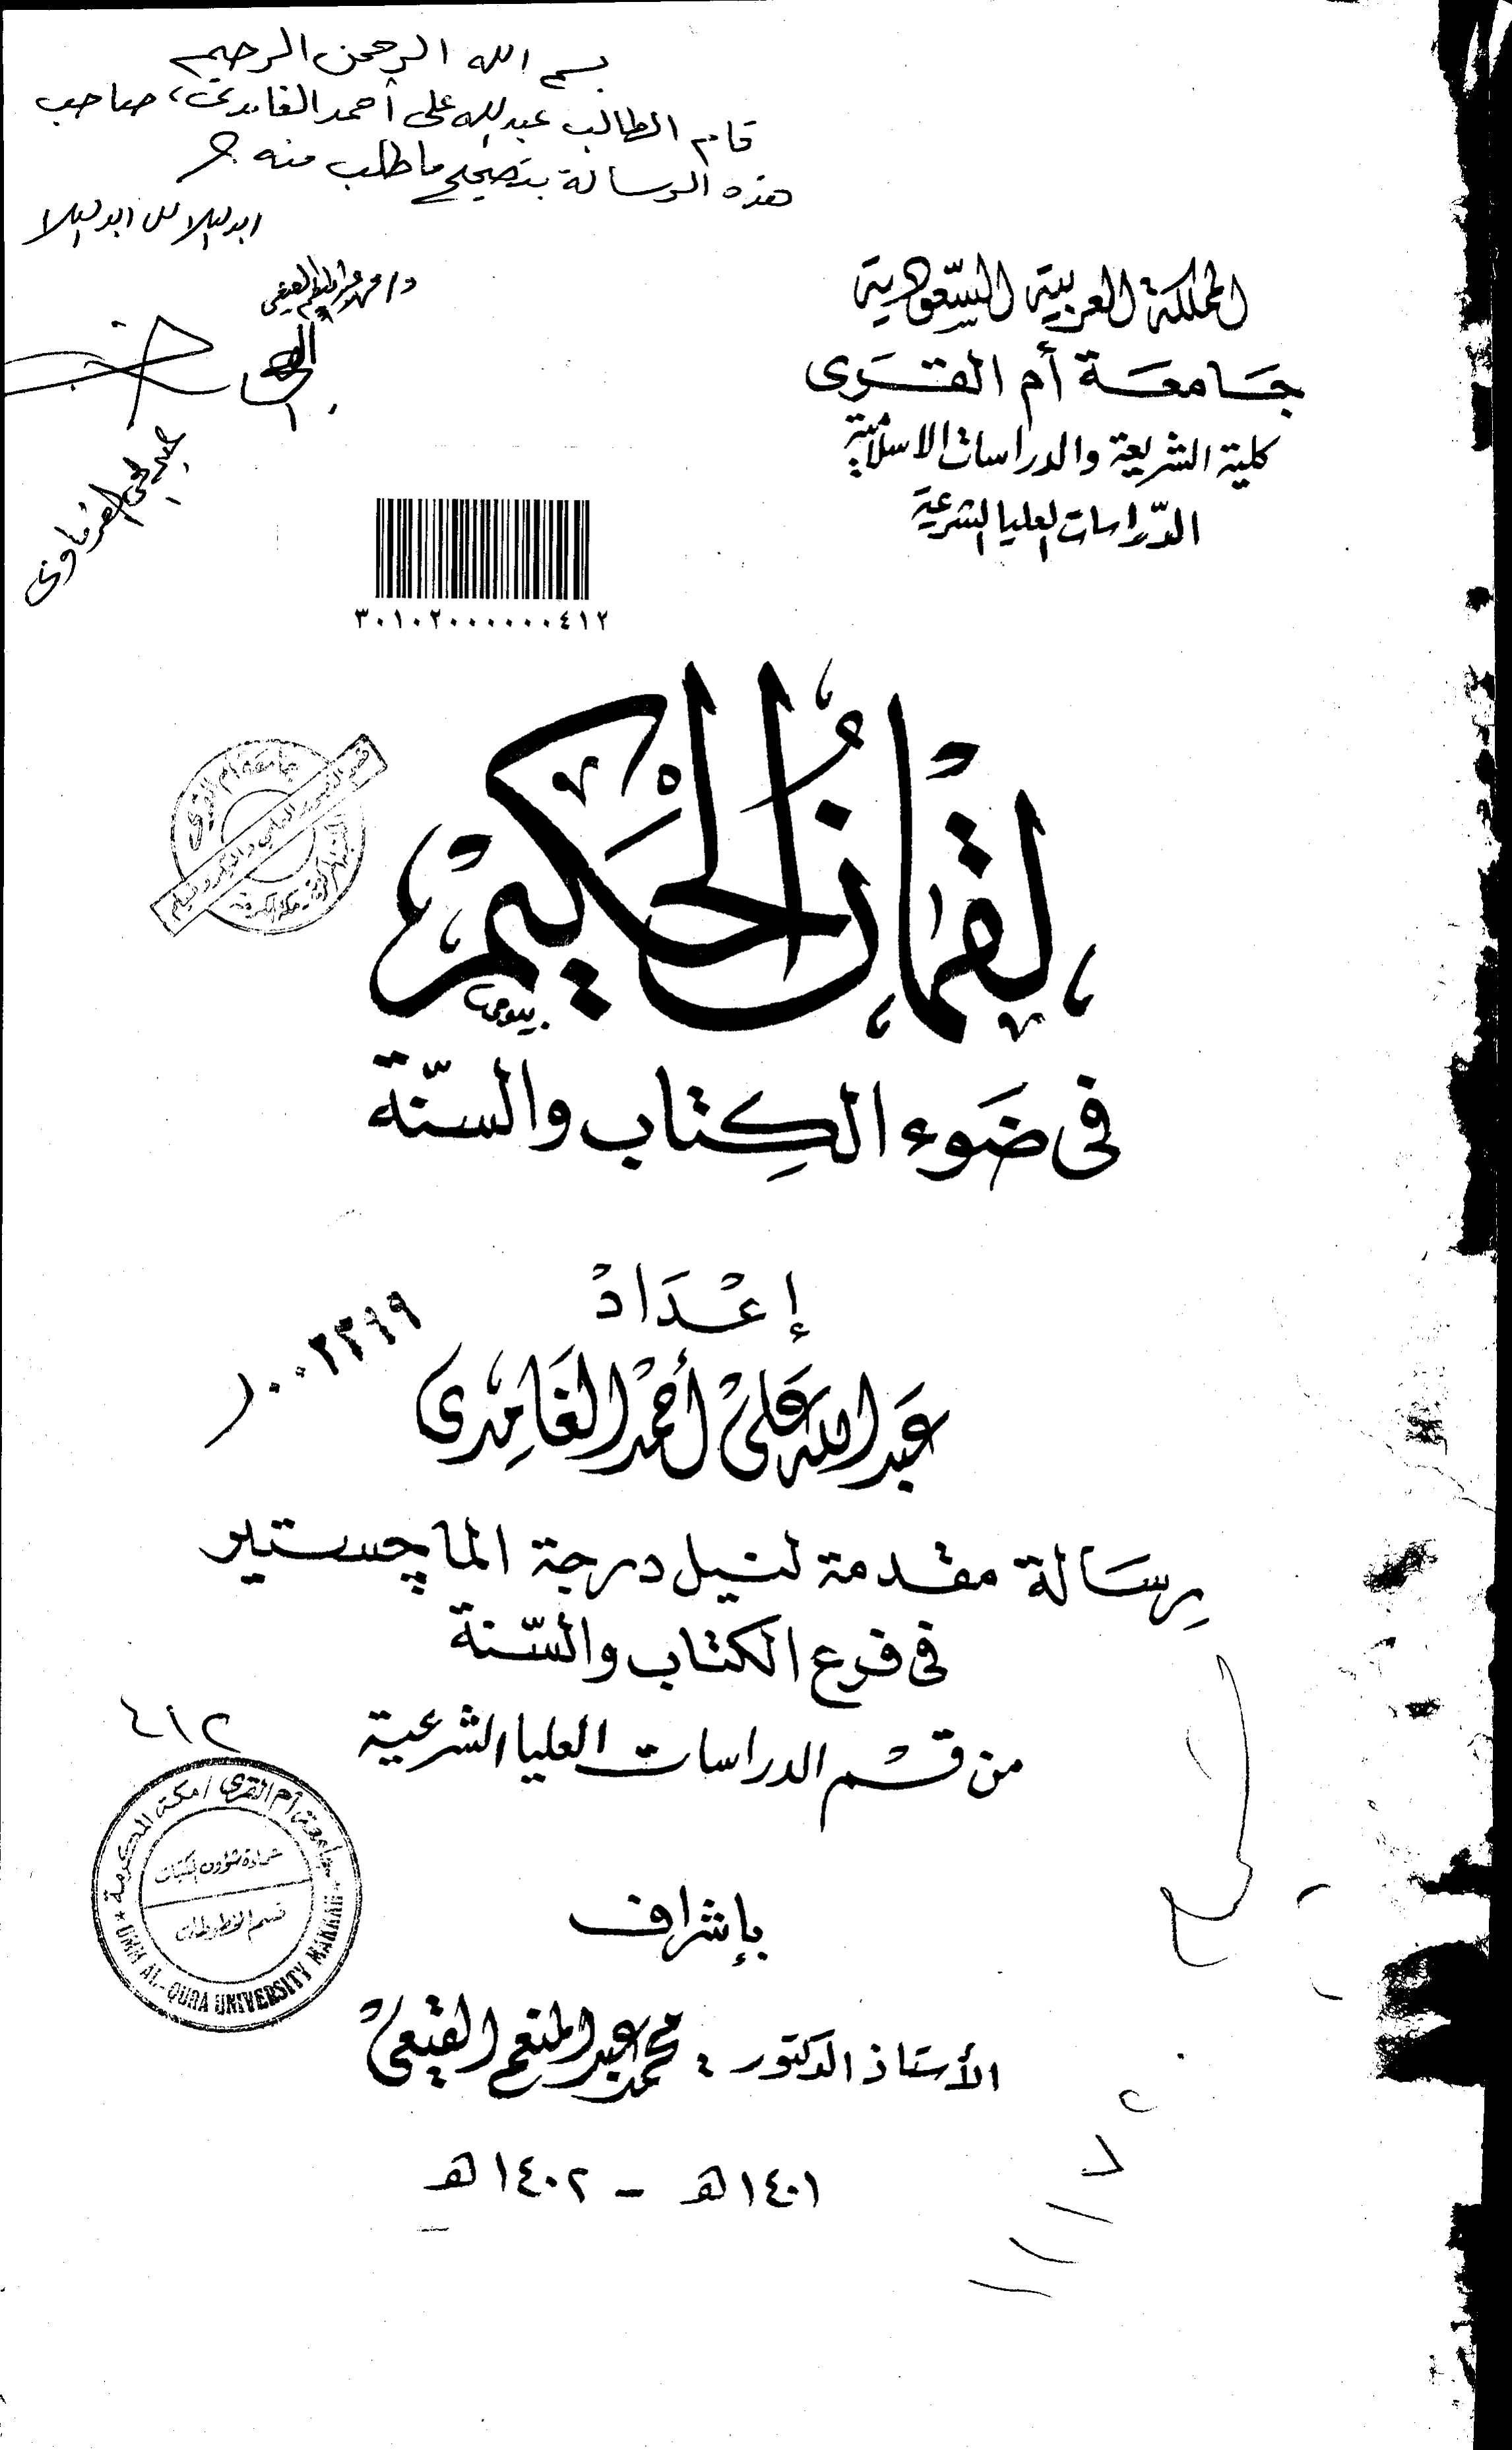 بسم الله الرحمن الرحيم
قام الطالب عبدالله على أحمد الغامدى، صاحب
هذه الرسالة بتصحيح ما طلب منه
المملكة العربية السعودية
جامعة أم القرى
كلية الشريعة والدراسات الاسلامية
الدراسات العليا الشرعية
٣٠١٠٢٠٠٠٠٠٠٤١٢
لقمان الحكيم
فى ضوء الكتاب والسنة
إعداد
عبد الله على أحمد الغامدى
رسالة مقدمة لنيل درجة الماچستير
فى فرع الكتاب والسنة
من قسم الدراسات العليا الشرعية
٤١٢
جامعة أم القرى / مكة المكرمة
عمادة شؤون المكتبات
قسم المخطوطات
UMM AL-QURA UNIVERSITY MAKKAH
بإشراف
الأستاذ الدكتور : محمد عبد المنعم القيعى
١٤٠١هـ - ١٤٠٢هـ